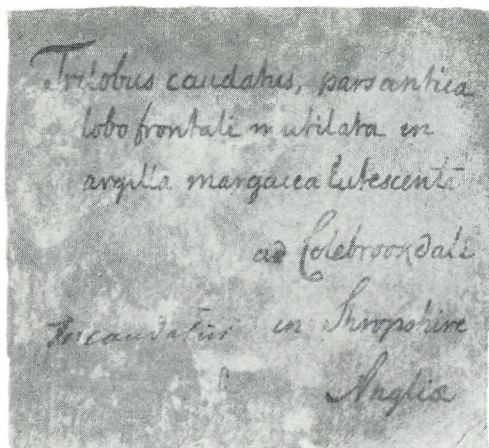 Trilobus caudatus, pars antica
lobo frontali mutilata in
argilla margacea lutescente
ad Colebrookdale
in Shropshire
Anglia